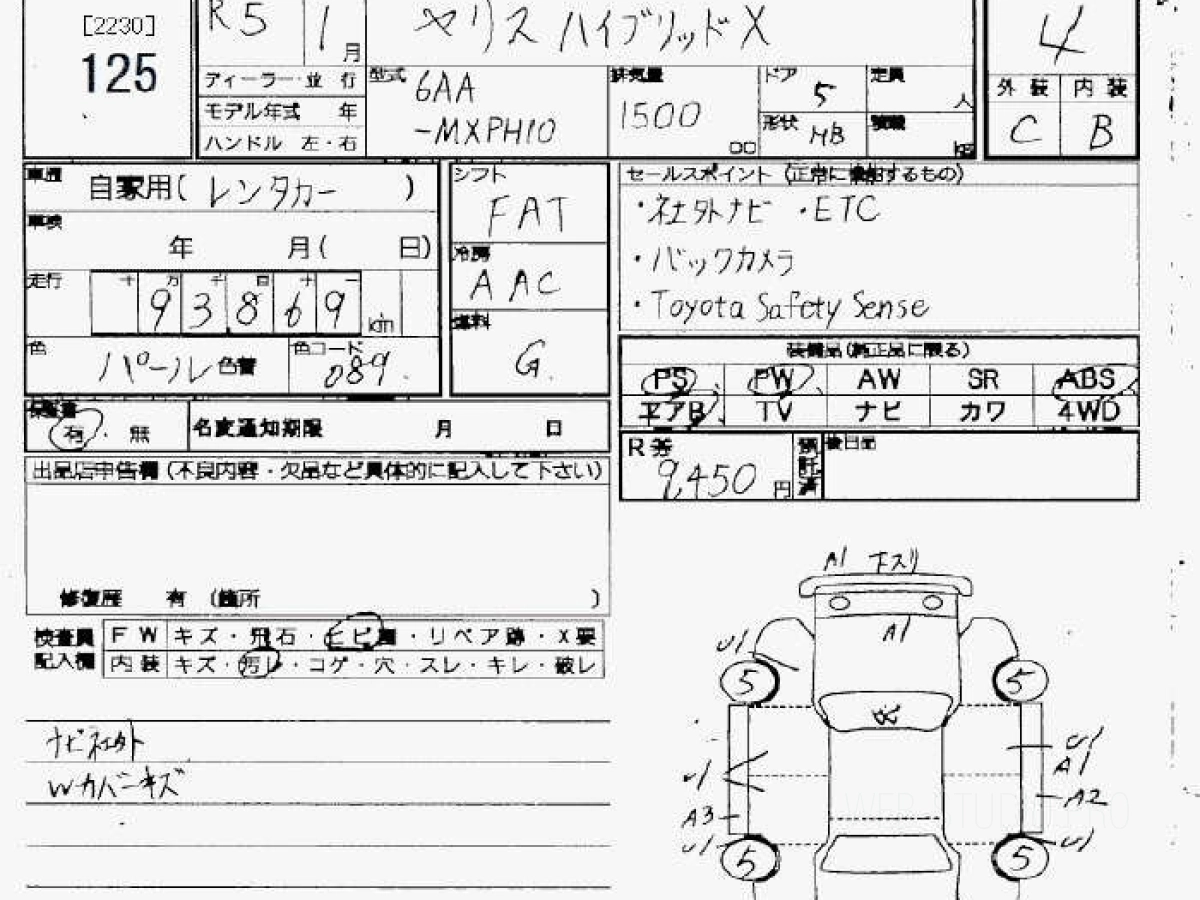 [2230]
125
R5 1月
ヤリス ハイブリッドX
4
ディーラー・並行
モデル年式 年
ハンドル 左・右
型式 6AA
-MXPH10
排気量
1500
cc
ドア 5
形状 HB
定員
人
積載
kg
外装 内装
C B
車歴 自家用( レンタカー )
車検
年 月( 日)
走行 十万千百十一
93869 km
色 パール 色替
色コード
089
シフト
FAT
冷房
AAC
燃料
G
セールスポイント (正常に機能するもの)
・社外ナビ ・ETC
・バックカメラ
・Toyota Safety Sense
装備品(純正品に限る)
PS PW AW SR ABS
エアB TV ナビ カワ 4WD
保証書
有・無
名変通知期限 月 日
R券
9,450円
預託済
後日品
出品店申告欄(不良内容・欠品など具体的に記入して下さい)
修復歴 有 (箇所 )
検査員 FW キズ・飛石・ヒビ割・リペア跡・X要
記入欄 内装 キズ・汚レ・コゲ・穴・スレ・キレ・破レ
ナビ社外
Wカバーキズ
A1 下スリ
A1
U1
5 5
U1
A1
U1
A3 A2
U1 U1
5 5